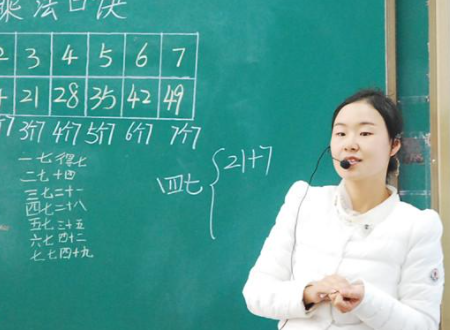 乘法口决
2 3 4 5 6 7
21 28 35 42 49
3个7 4个7 5个7 6个7 7个7
一七得七
二七十四
三七二十一
四七二十八
五七三十五
六七四十二
七七四十九
四七 21+7